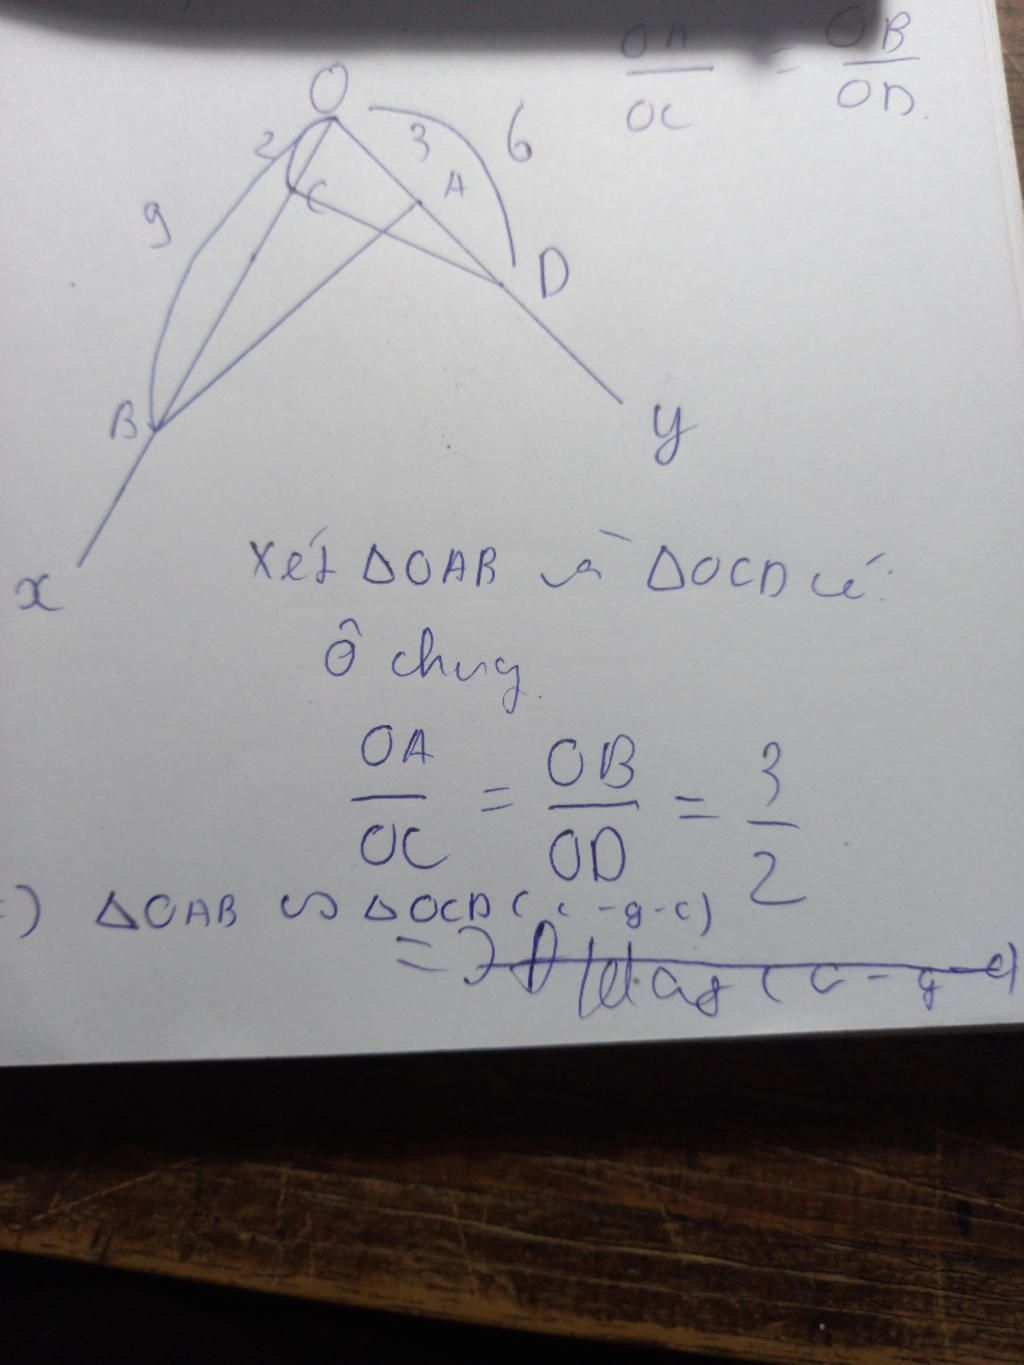 OA/OC = OB/OD
O
2
3
6
C
A
9
D
B
y
x
Xét ΔOAB và ΔOCD có:
Ô chung.
OA/OC = OB/OD = 3/2
=) ΔOAB ∽ ΔOCD (c-g-c)
=)
(c-g-c)